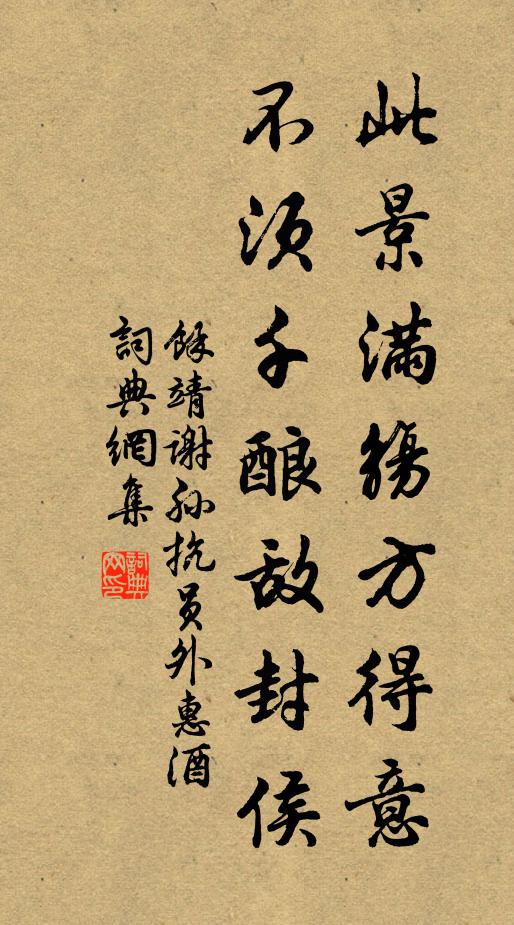 此景满觞方得意
不须千酿敌封侯
馀靖谢孙抗员外惠酒
詞典網集
詞典网印